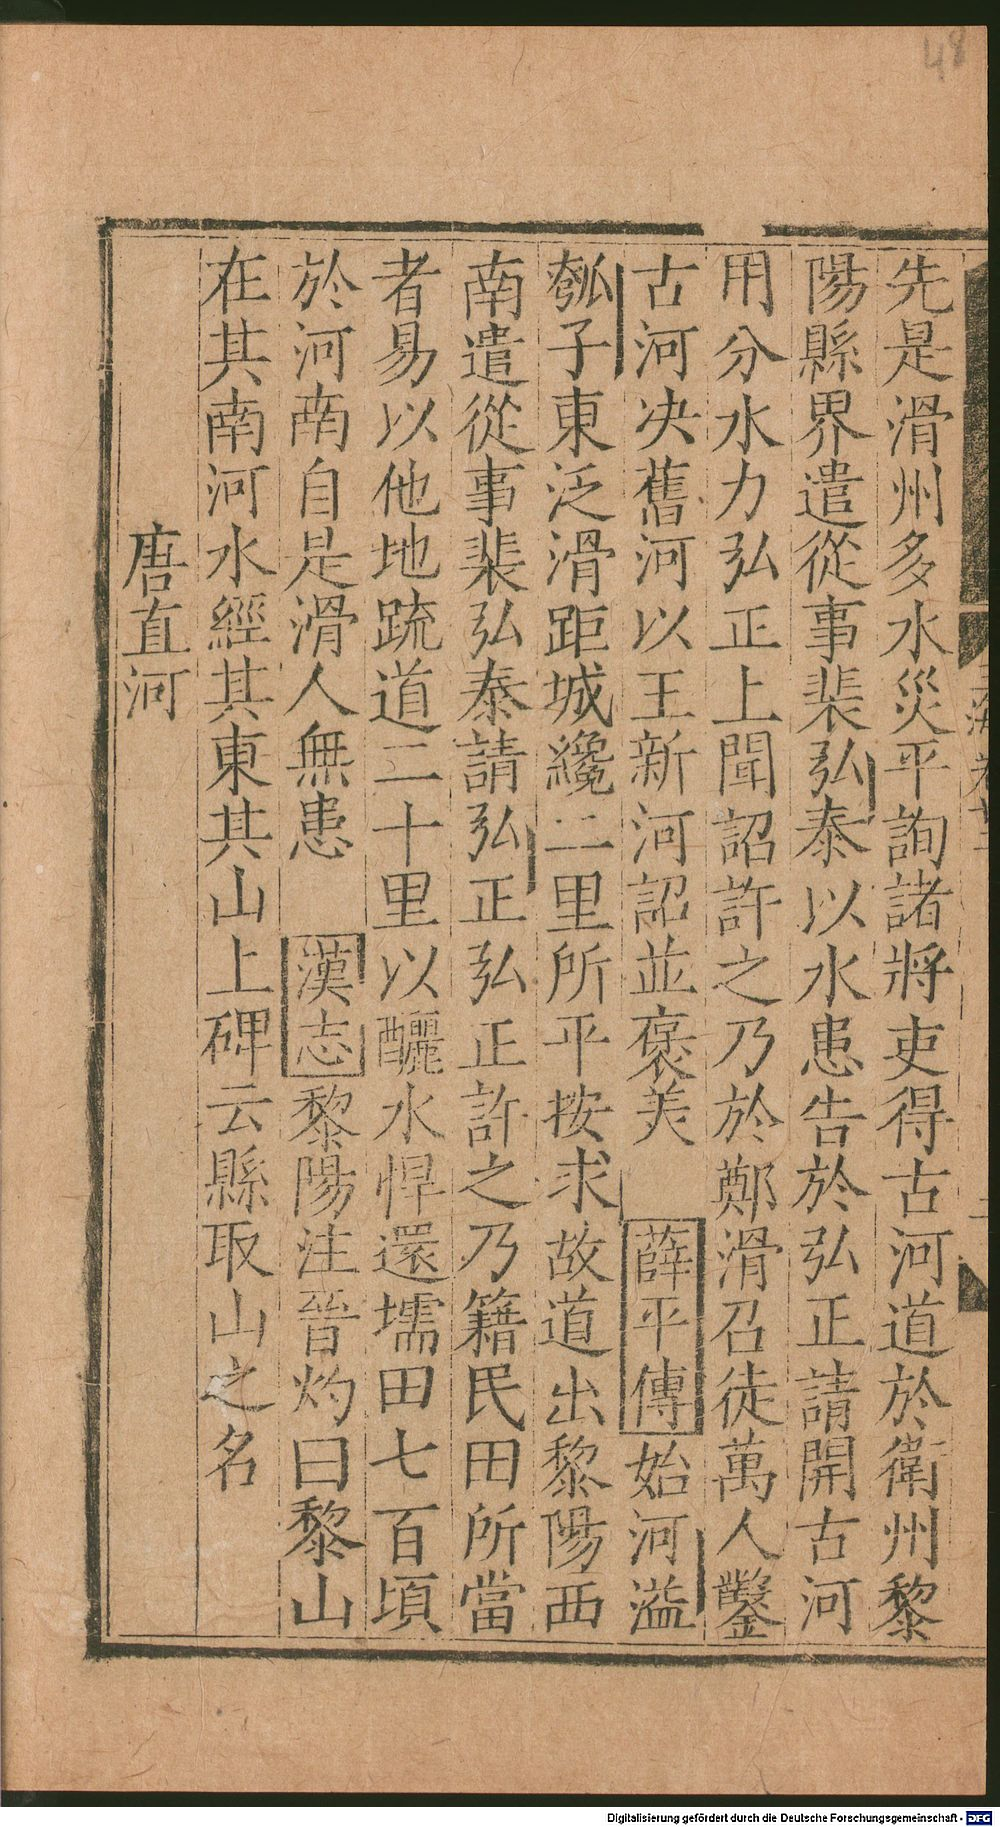 48
先是滑州多水災平詢諸將吏得古河道於衛州黎
陽縣界遣從事裴弘泰以水患告於弘正請開古河
用分水力弘正上聞詔許之乃於鄭滑召徒萬人鑿
古河决舊河以王新河詔並褒美　薛平傳始河溢
瓠子東泛滑距城纔二里所平按求故道出黎陽西
南遣從事裴弘泰請弘正弘正許之乃籍民田所當
者易以他地䟽道二十里以釃水悍還壖田七百頃
於河南自是滑人無患　漢志黎陽注晉灼曰黎山
在其南河水經其東其山上碑云縣取山之名
唐直河
Digitalisierung gefördert durch die Deutsche Forschungsgemeinschaft - DFG